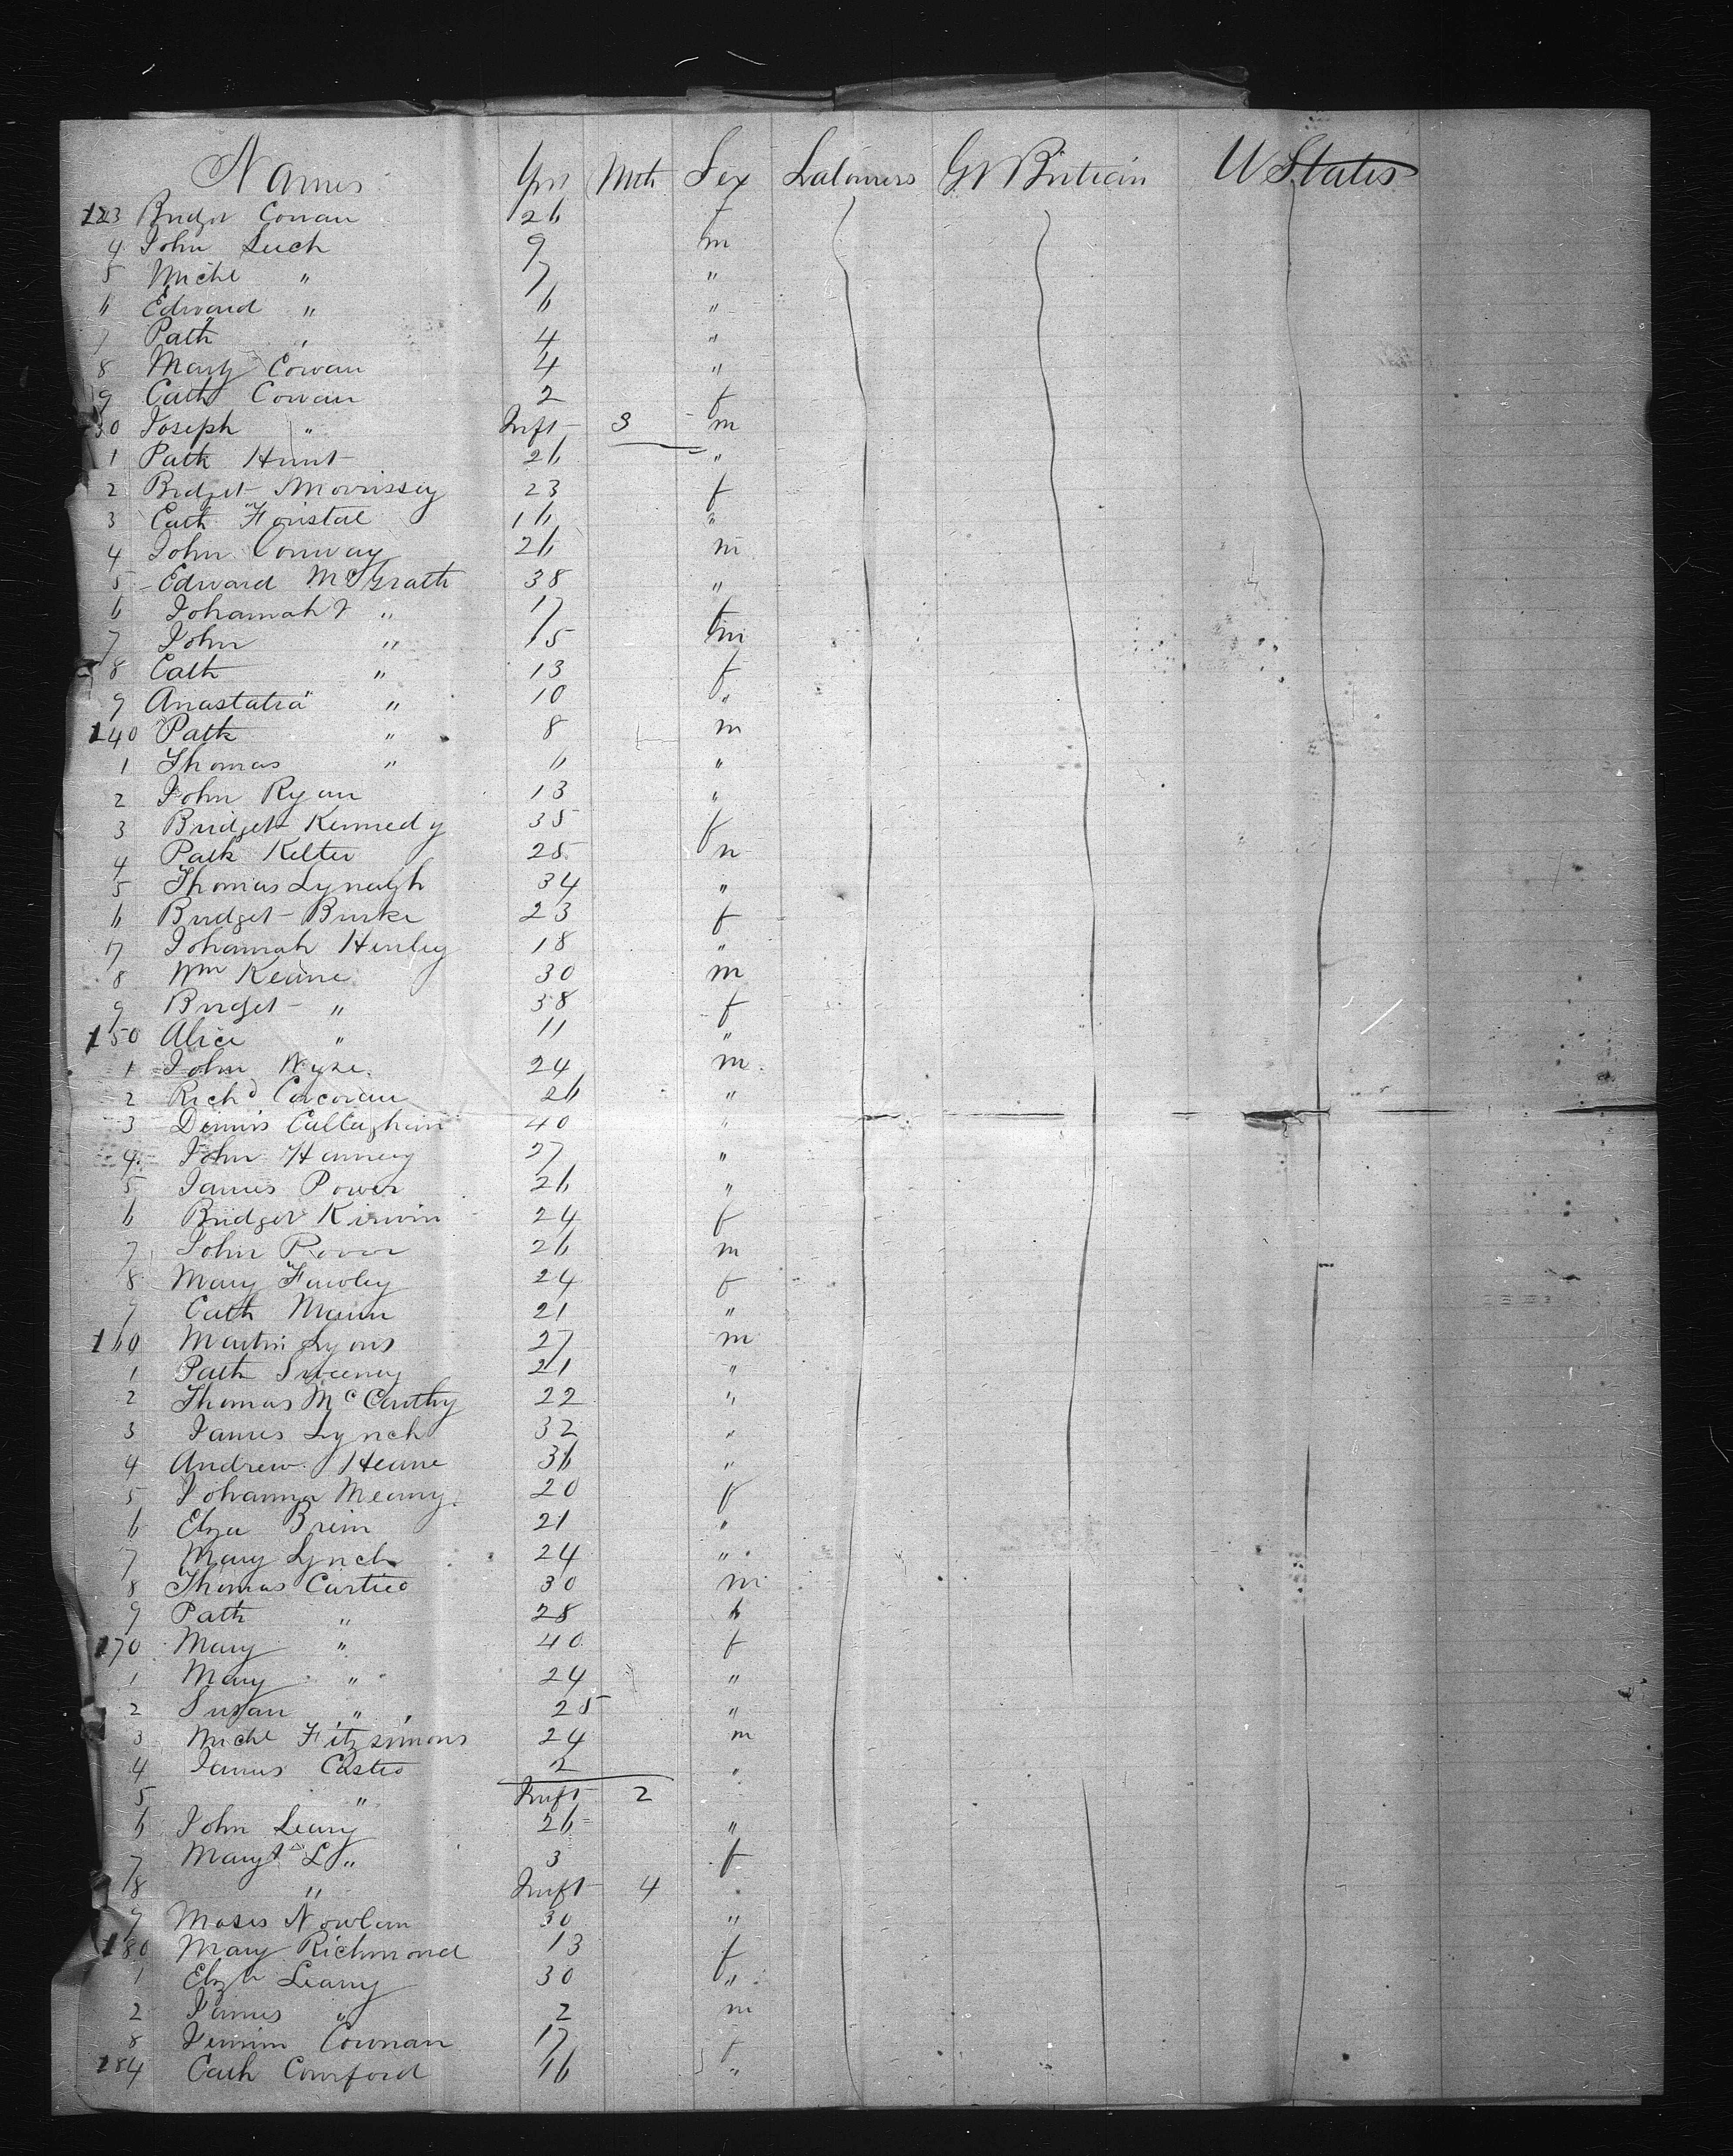 Names Yrs Mth Sex Labourers Gt Britain U States
123 Bridgt Cowan 26 f
4 John Luch 9 m
5 Michl " 7 "
6 Edward " 6 "
7 Patk " 4 "
8 Mary Cowan 4 "
9 Cath Cowan 2 f
30 Joseph " Inft 3 m
1 Patk Hunt 26 "
2 Bridget Morrissey 23 f
3 Cath Foristal 16 "
4 John Conway 26 m
5 Edward McGrath 38 "
6 Johannah " 17 f
7 John " 15 m
8 Cath " 13 f
9 Anastatia " 10 "
140 Patk " 8 m
1 Thomas " 6 "
2 John Ryan 13 "
3 Bridget Kennedy 35 f
4 Patk Kelter 25 m
5 Thomas Lynagh 34 "
6 Bridget Burke 23 f
7 Johannah Henley 18 "
8 Wm Keane 30 m
9 Bridget " 38 f
150 Alice " 11 "
1 John Nyse 24 m
2 Richd Corcoran 26 "
3 Dennis Callaghan 40 "
4 John Hanney 27 "
5 James Power 26 "
6 Bridget Kirwin 24 f
7 John Power 26 m
8 Mary Fawley 24 f
9 Cath Mann 21 "
160 Martin Lyons 27 m
1 Patk Sweeney 21 "
2 Thomas McCarthy 22 "
3 James Lynch 32 "
4 Andrew Heane 36 "
5 Johanna Meany 20 f
6 Eliza Brein 21 "
7 Mary Lynch 24 "
8 Thomas Casties 30 m
9 Patk " 28 "
170 Mary " 40 f
1 Mary " 24 "
2 Susan " 25 "
3 Michl Fitzsimons 24 m
4 James Casteo 2 "
5 " Inft 2
6 John Leary 26 "
7 Maryt L " 3 f
8 " Inft 4
9 Moses Nowlan 30 "
180 Mary Richmond 13 f
1 Elzh Leary 30 "
2 James " 2 m
8 Cownan 17 f
184 Cath Cowford 16 "